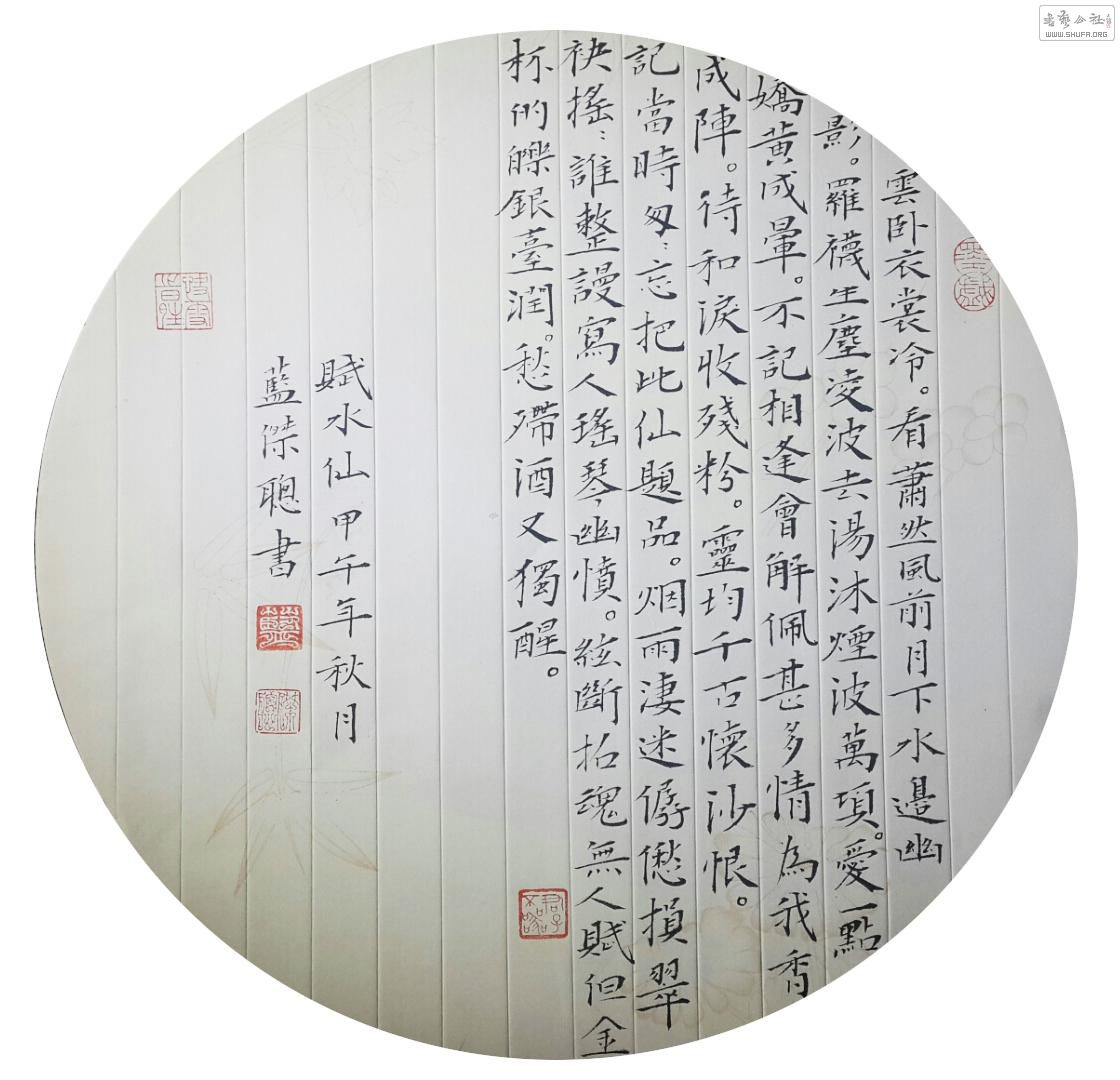 雲卧衣裳冷。看蕭然風前月下水邊幽
影。羅襪生塵凌波去湯沐煙波萬頃。愛一點
嬌黄成暈。不記相逢曾解佩甚多情為我香
成陣。待和淚收殘粉。靈均千古懷沙恨。
記當時匆:忘把此仙題品。烟雨淒迷僝僽損翠
袂搖:誰整謾寫入瑤琴幽憤。絃斷招魂無人賦但金
杯的皪銀臺潤。愁殢酒又獨醒。
賦水仙甲午年秋月
藍傑聰書
書藝公社
WWW.SHUFA.ORG